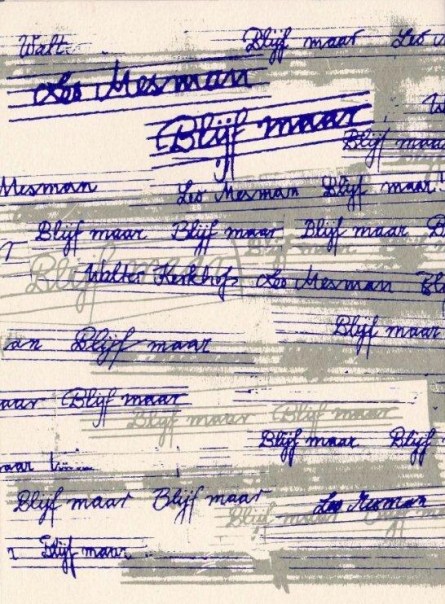 Walt Blijf maar Leo
Leo Mesman
Blijf maar
Blijf maar
Mesman Leo Mesman Blijf maar
Blijf maar Blijf maar Blijf maar
Blijf maar
Walter Kerkhofs Leo Mesman
Blijf maar
Blijf maar
an Blijf maar
aar Blijf maar
Blijf maar Blijf maar
Blijf maar Blijf
aar
Blijf maar Blijf maar Leo Mesman
Blijf maar